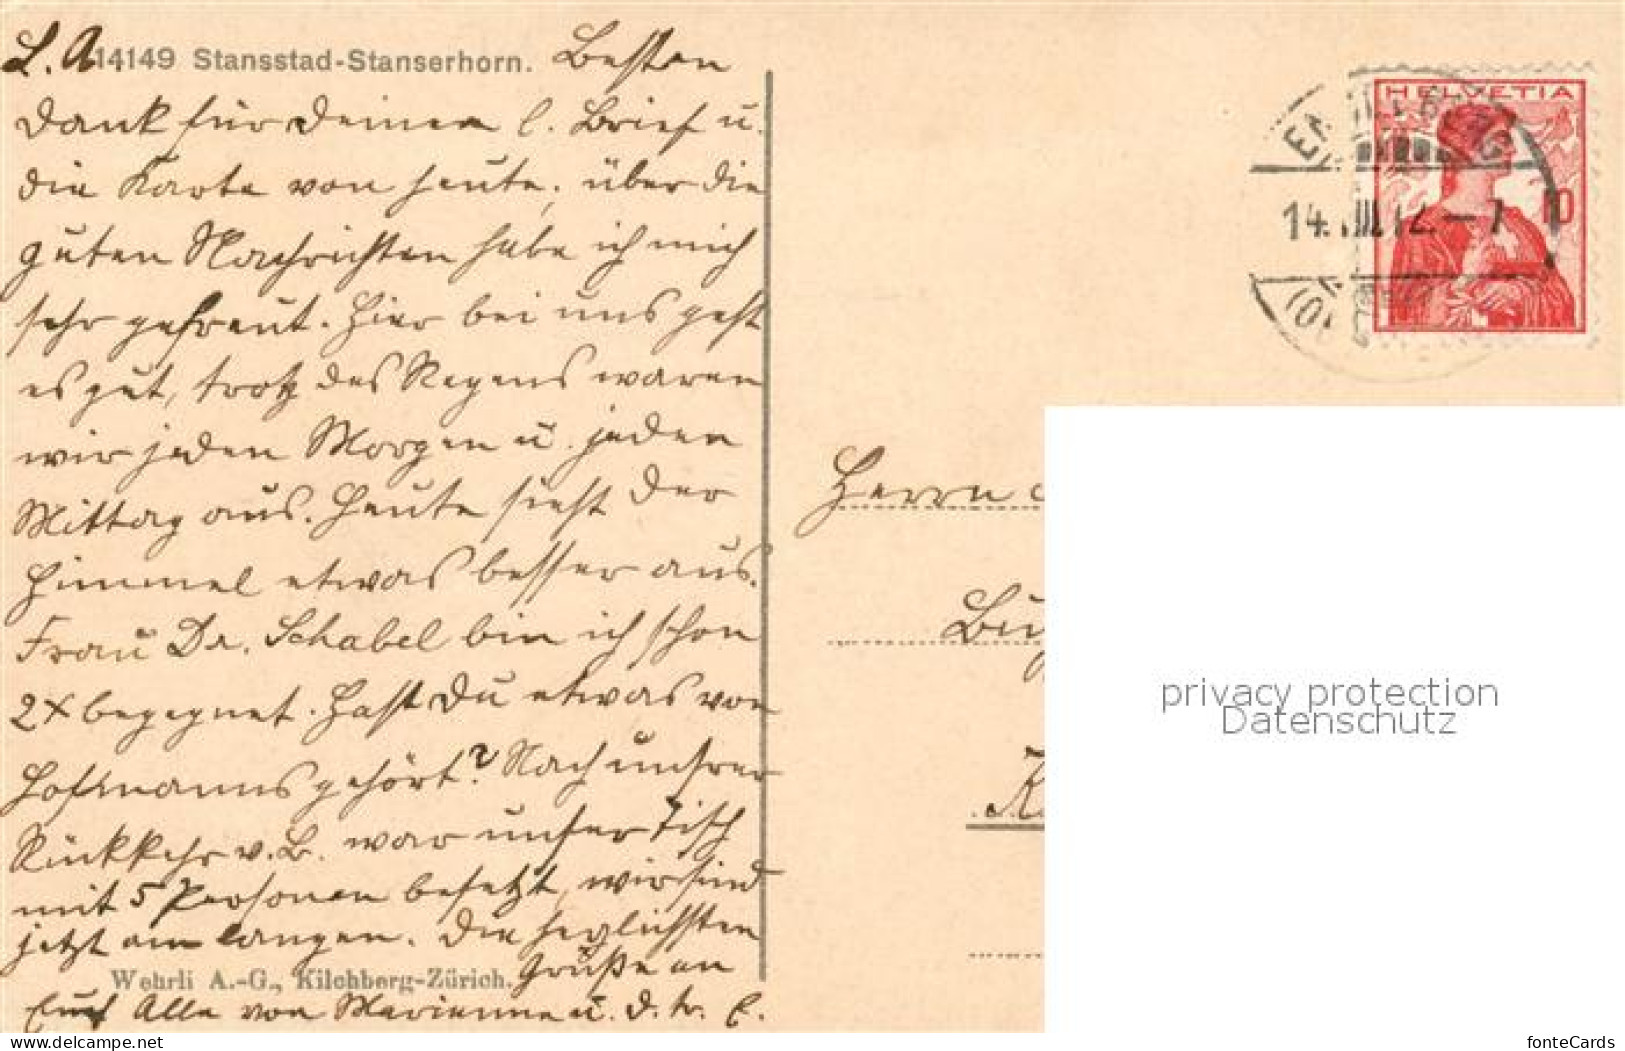 L. A.
14149 Stansstad-Stanserhorn.
Besten
Dank für Deinen l. Brief u.
die Karte von heute, über die
guten Nachrichten habe ich mich
sehr gefreut. Hier bei uns geht
es gut, trotz des Regens waren
wir jeden Morgen u. jeden
Mittag aus. Heute sieht der
Himmel etwas besser aus.
Frau Dr. Schabel bin ich schon
2x begegnet. Hast Du etwas von
Hofmanns gehört? Nach unsrer
Rückkehr v. B. war unser Tisch
mit 5 Personen besetzt, wir sind
jetzt am langen. Die herzlichsten
Grüße an
Wehrli A.-G., Kilchberg-Zürich.
Euch Alle von Marianne u. d. tr. E.
HELVETIA
10
14.VIII.12.-7
Herrn
privacy protection
Datenschutz
www.delcampe.net
fonteCards